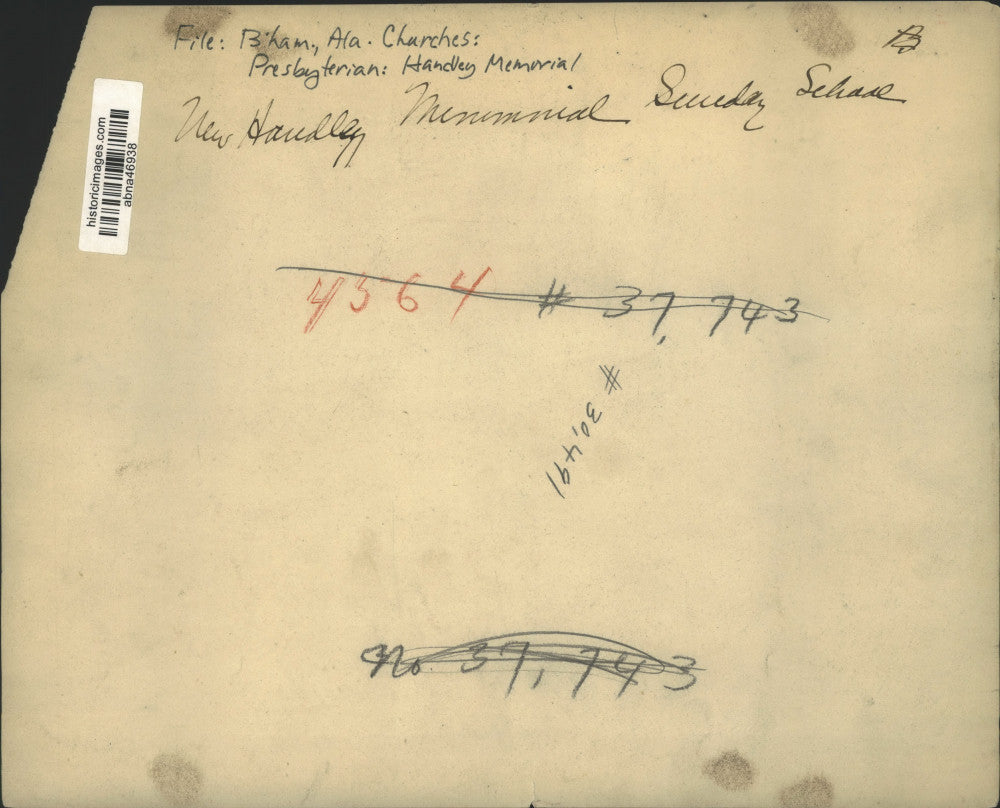 File: B'ham, Ala. Churches:
Presbyterian: Handley Memorial
B
New Handley Memmnial Sunday School
historicimages.com
abna46938
4364 # 37,743
# 30,491
No. 37,743